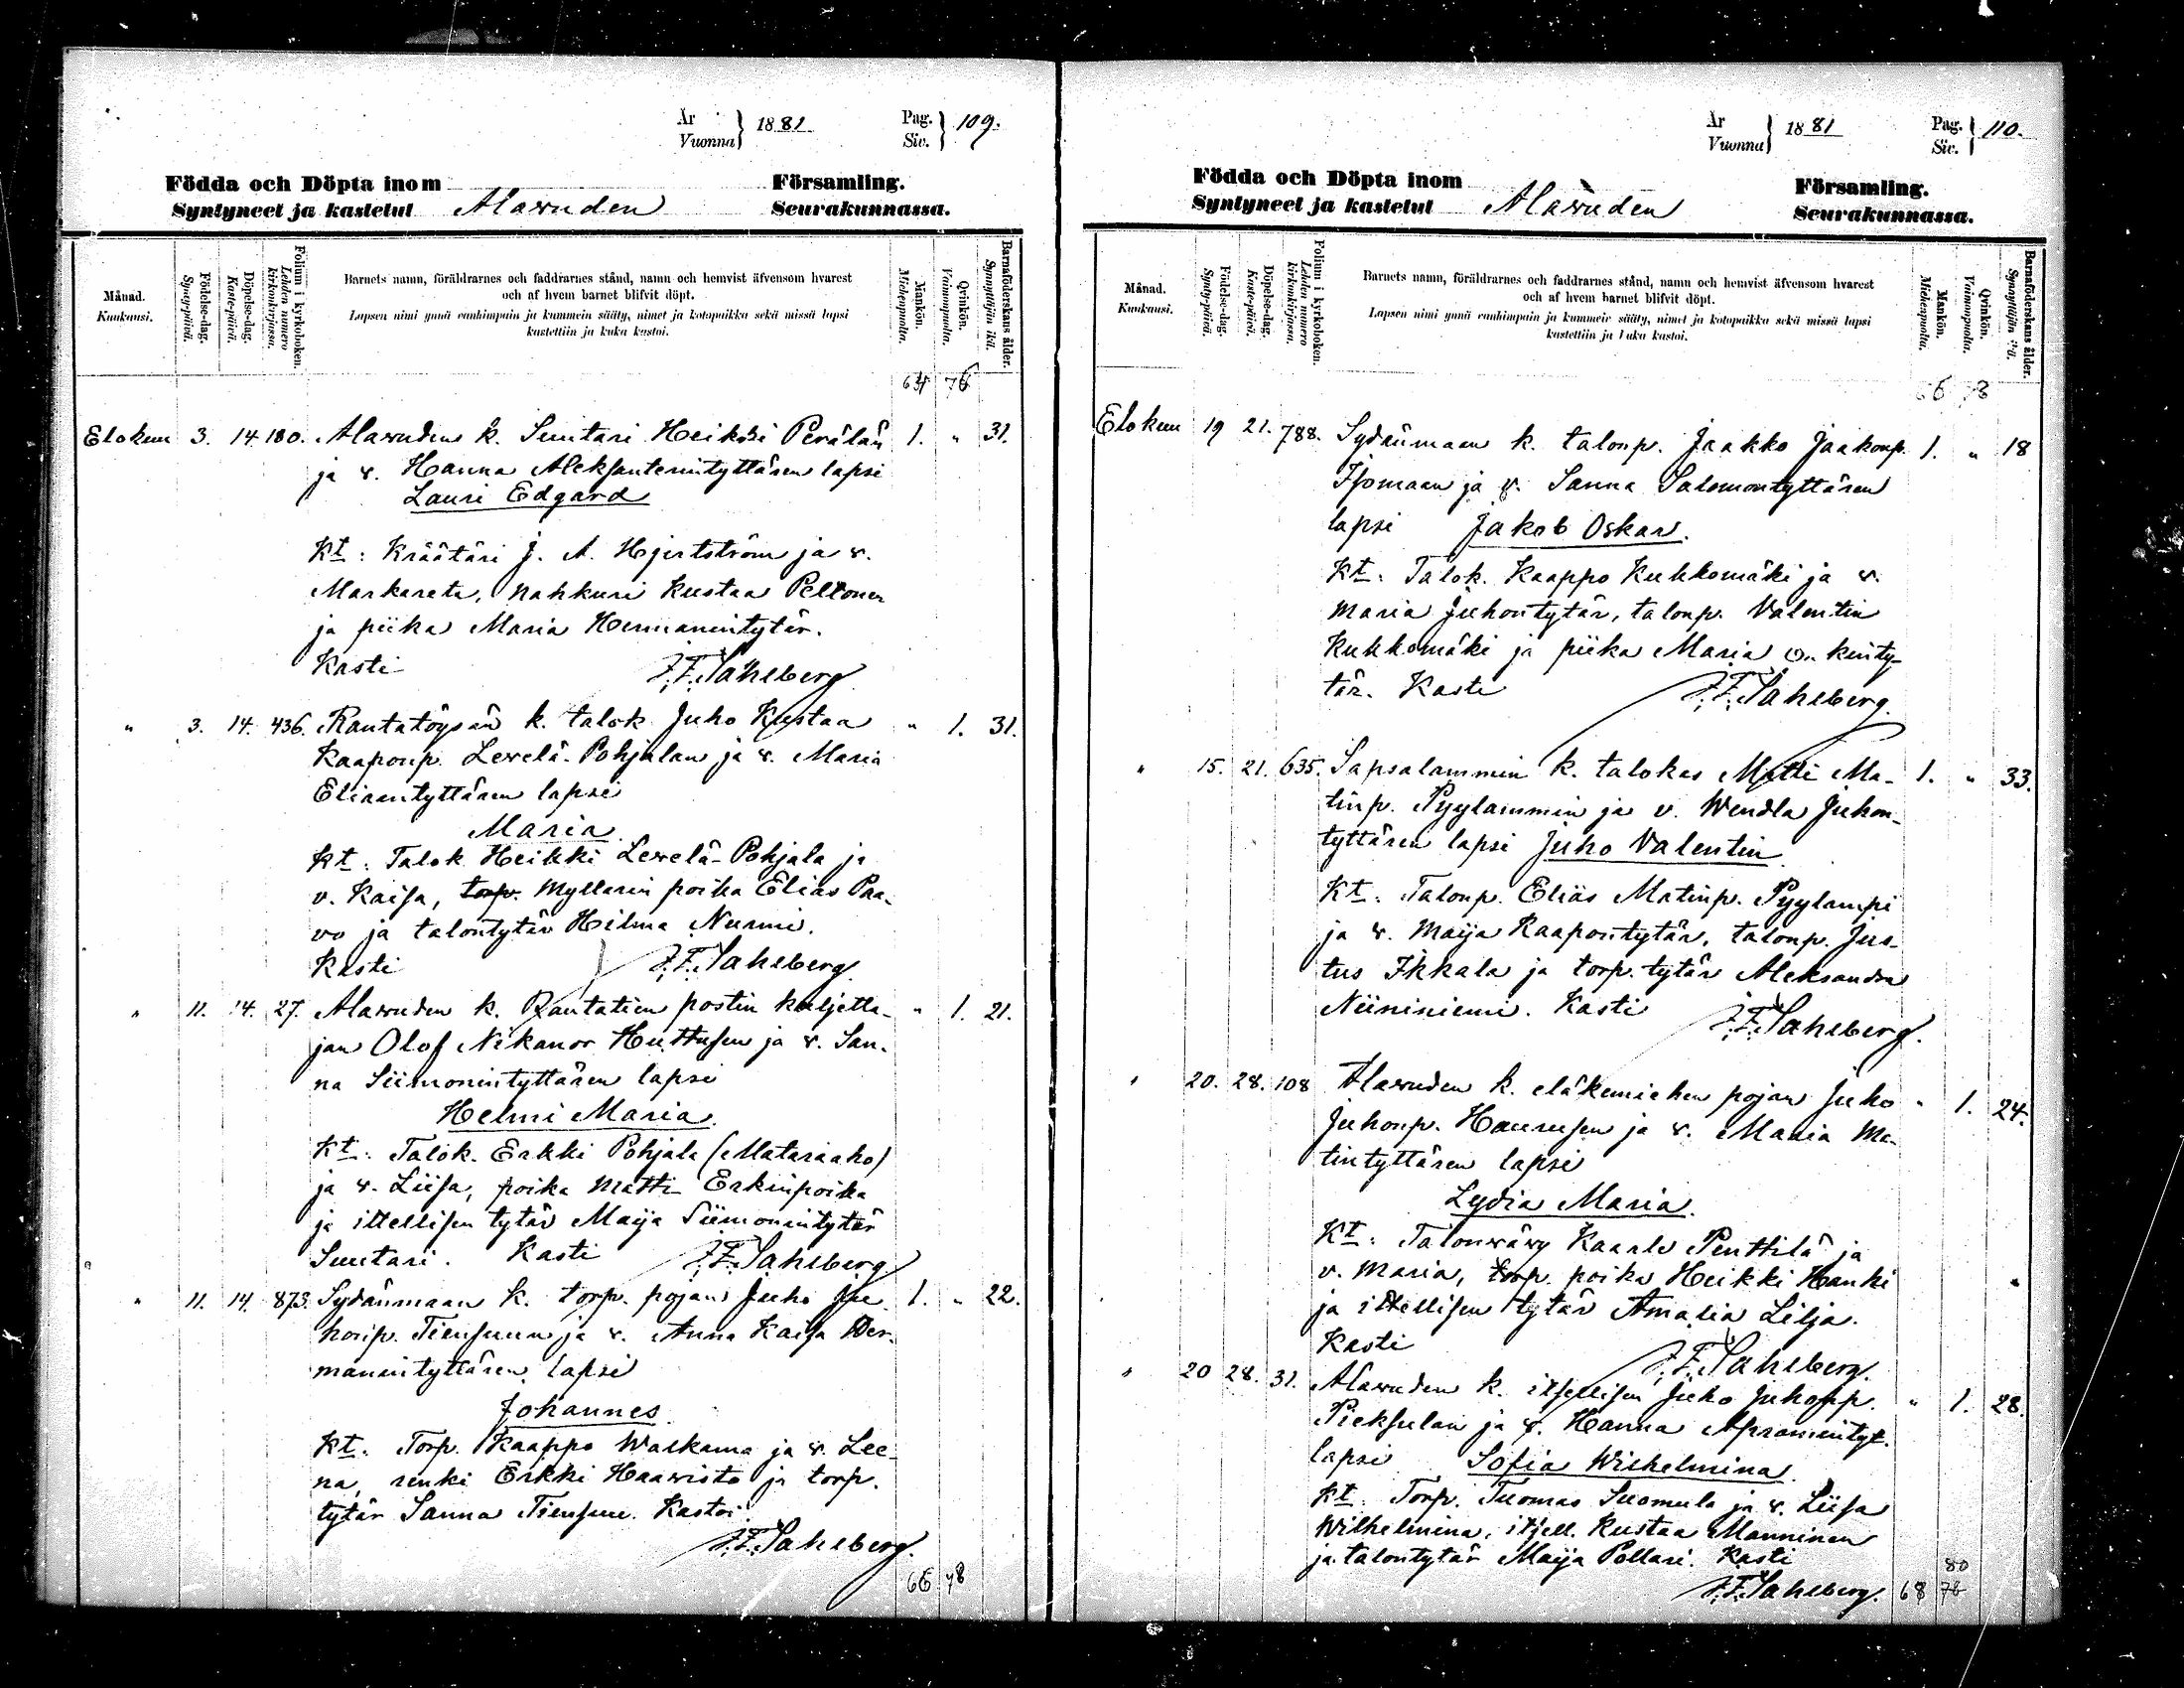 År
Vuonna } 1881
Pag.
Siv. } 109.
Födda och Döpta inom Församling.
Syntyneet ja kastetut Alavuden Seurakunnassa.
Månad.
Kuukausi.
Födelse-dag.
Synty-päivä.
Döpelse-dag.
Kaste-päivä.
Folium i kyrkoboken.
Lehden numero kirkonkirjassa.
Barnets namn, föräldrarnes och faddrarnes stånd, namn och hemvist äfvensom hvarest
och af hvem barnet blifvit döpt.
Lapsen nimi ynnä vanhimpain ja kummein sääty, nimet ja kotopaikka sekä missä lapsi
kastettiin ja kuka kastoi.
Mankön.
Miehenpuolta.
Qvinkön.
Vaimonpuolta.
Barnaföderskans ålder.
Synnyttäjän ikä.
64 76
Elokuu 3. 14. 180. Alavuden k. Suutari Heikki Perälän 1. „ 31.
ja v. Hanna Aleksanterintyttären lapsi
Lauri Edgard
Kt: Kräätäri J. A. Hjertström ja v.
Markareta, nahkuri Kustaa Peltonen
ja piika Maria Hermannintytär.
Kasti J. F. Sahlberg
„ 3. 14. 436. Rantatöysän k. talok. Juho Kustaa „ 1. 31.
Kaaponp. Levelä-Pohjalan ja v. Maria
Eliaantyttären lapsi
Maria.
Kt: Talok. Heikki Levelä-Pohjala ja
v. Kaisa, torp. Myllarin poika Elias Paa-
vo ja talontytär Hilma Nurmi.
Kasti J. F. Sahlberg.
„ 11. 14. 27. Alavuden k. Rautatien postin kuljetta- „ 1. 21.
jan Olof Nikanor Huttusen ja v. San-
na Siimonintyttären lapsi
Helmi Maria.
Kt: Talok. Erkki Pohjala (Mataraaho)
ja v. Liisa, poika Matti Erkinpoika
ja ittellisen tytär Maija Siimonintytär
Suutari. Kasti J. F. Sahlberg.
„ 11. 14. 873. Sydänmaan k. torp. pojan Juho Ju- 1. „ 22.
honp. Tiensuun ja v. Anna Kaisa Her-
mannintyttären lapsi
Johannes.
Kt: Torp. Kaappo Walkama ja v. Lee-
na, renki Erkki Haavisto ja torp.
tytär Sanna Tiensuu. Kastoi
J. F. Sahlberg.
66 78
År
Vuonna } 1881
Pag.
Siv. } 110.
Födda och Döpta inom Församling.
Syntyneet ja kastetut Alavuden Seurakunnassa.
Månad.
Kuukausi.
Födelse-dag.
Synty-päivä.
Döpelse-dag.
Kaste-päivä.
Folium i kyrkoboken.
Lehden numero kirkonkirjassa.
Barnets namn, föräldrarnes och faddrarnes stånd, namn och hemvist äfvensom hvarest
och af hvem barnet blifvit döpt.
Lapsen nimi ynnä vanhimpain ja kummein sääty, nimet ja kotopaikka sekä missä lapsi
kastettiin ja kuka kastoi.
Mankön.
Miehenpuolta.
Qvinkön.
Vaimonpuolta.
Barnaföderskans ålder.
Synnyttäjän ikä.
66 78
Elokuu 19 21. 788. Sydänmaan k. talonp. Jaakko Jaakonp. 1. „ 18
Isomaan ja v. Sanna Salomontyttären
lapsi Jakob Oskar.
Kt: Talok. Kaappo Kuhkomäki ja v.
Maria Juhontytär, talonp. Valentin
Kuhkomäki ja piika Maria kinty-
tär. Kasti J. F. Sahlberg.
„ 15. 21. 635. Sapsalammin k. talokas Matti Ma- 1. „ 33.
tinp. Pyylammin ja v. Wendla Juhon-
tyttären lapsi Juho Valentin
Kt: Talonp. Eliäs Matinp. Pyylampi
ja v. Maija Kaapontytär, talonp. Jus-
tus Ikkala ja torp. tytär Aleksandra
Niininiemi. Kasti J. F. Sahlberg.
„ 20. 28. 108 Alavuden k. eläkemiehen pojan Juho „ 1. 24.
Juhonp. Haurusen ja v. Maria Ma-
tintyttären lapsi
Lydia Maria.
Kt: Talonvävy Kaarlo Penttilä ja
v. Maria, torp. poika Heikki Hanki
ja ittellisen tytär Amalia Lilja.
Kasti J. F. Sahlberg.
„ 20 28. 31. Alavuden k. itsellisen Juho Juhonp. „ 1. 28.
Pieksulan ja v. Hanna Apramintyt.
lapsi Sofia Wilhelmina.
Kt: Torp. Tuomas Suomula ja v. Liisa
Wilhelmina, itsell. Kustaa Manninen
ja talontytär Maija Pollari. Kasti
J. F. Sahlberg. 68 78 80